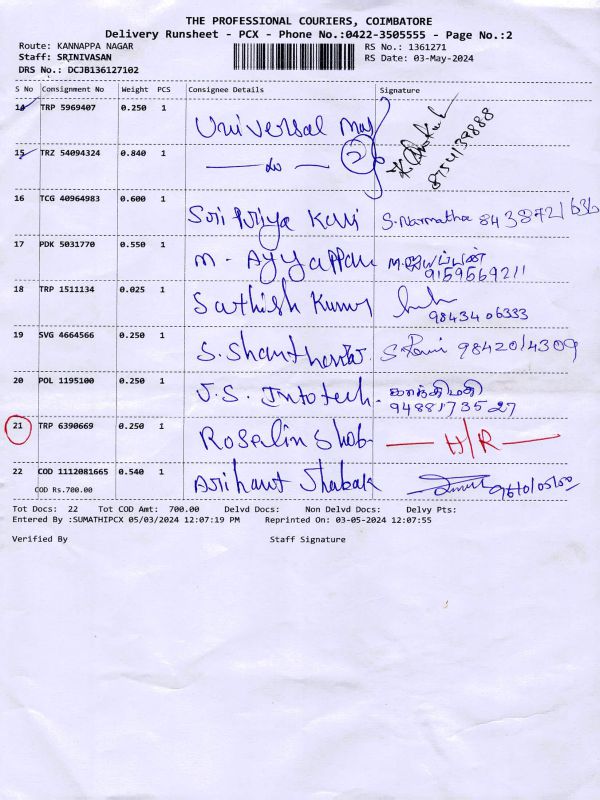 THE PROFESSIONAL COURIERS, COIMBATORE
Delivery Runsheet - PCX - Phone No.:0422-3505555 - Page No.:2
Route: KANNAPPA NAGAR RS No.: 1361271
Staff: SRINIVASAN RS Date: 03-May-2024
DRS No.: DCJB136127102
S No Consignment No Weight PCS Consignee Details Signature
14 TRP 5969407 0.250 1 Universal 8754139888
15 TRZ 54094324 0.840 1 — do — 2
16 TCG 40964983 0.600 1 Sri Priya S. Narmatha 8438721636
17 PDK 5031770 0.550 1 M - Ayyappan M. ஐயப்பன்
9159569211
18 TRP 1511134 0.025 1 Sathish Kumar
9843406333
19 SVG 4664566 0.250 1 S. 9842014309
20 POL 1195100 0.250 1 V.S. Infotech. காந்திமதி
9488173527
21 TRP 6390669 0.250 1 Rosalin Shob — H/R —
22 COD 1112081665 0.540 1 Arihant
COD Rs.700.00
Tot Docs: 22 Tot COD Amt: 700.00 Delvd Docs: Non Delvd Docs: Delvy Pts:
Entered By :SUMATHIPCX 05/03/2024 12:07:19 PM Reprinted On: 03-05-2024 12:07:55
Verified By Staff Signature